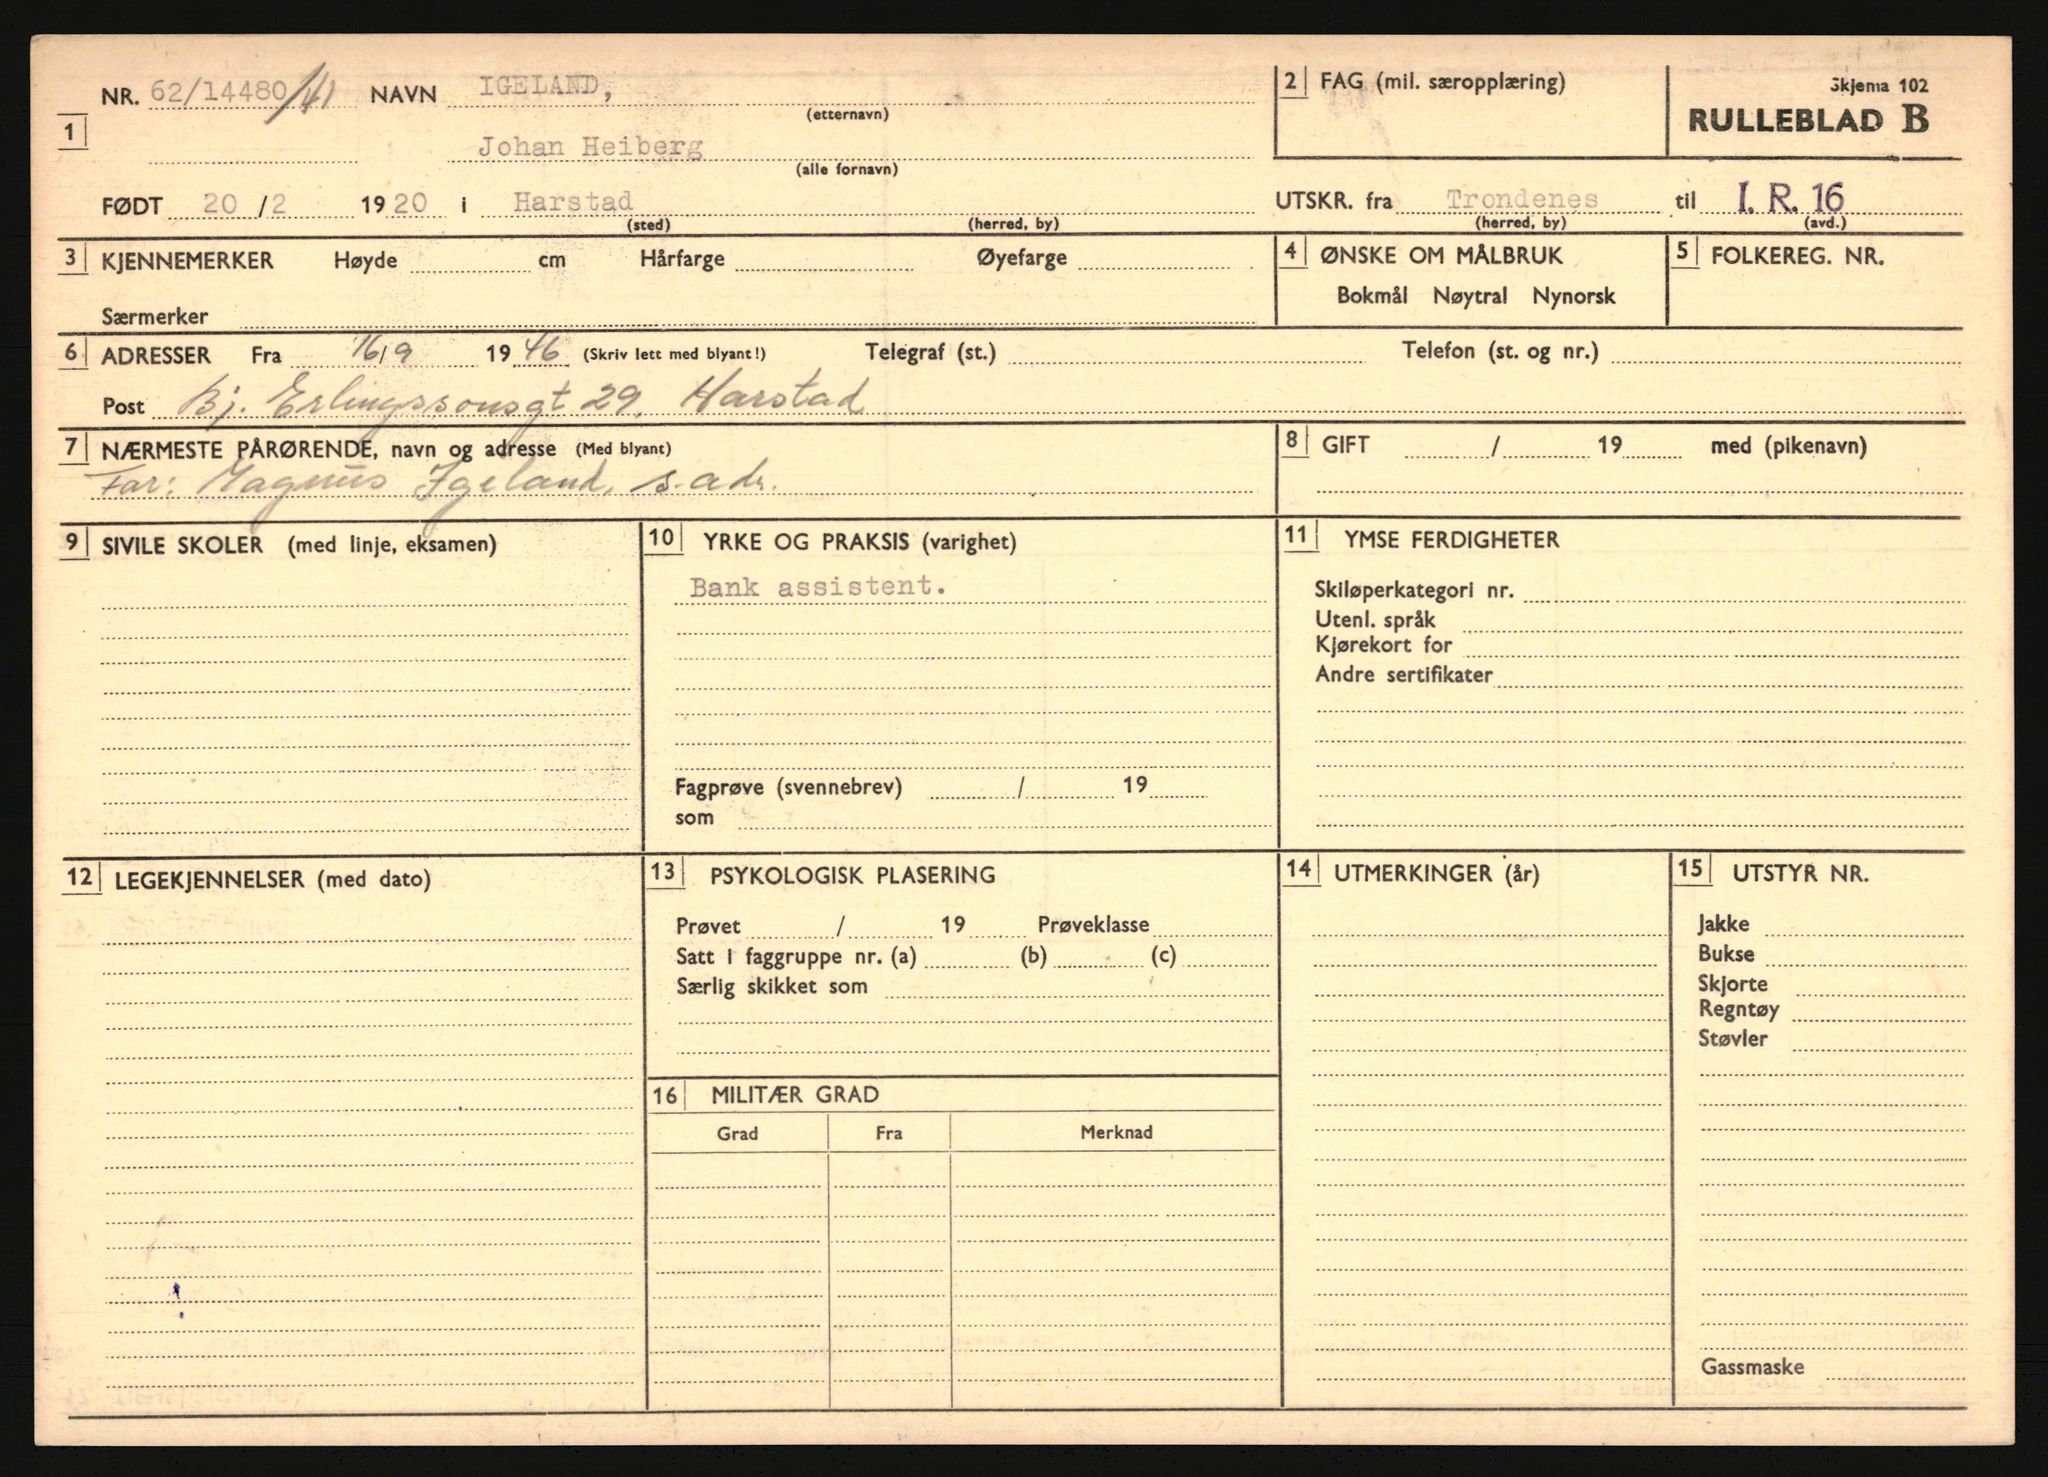 1 NR. 62/14480/41 NAVN IGELAND, (etternavn)
Johan Heiberg
(alle fornavn)
FØDT 20/2 1920 i Harstad
(sted) (herred, by)
2 FAG (mil. særopplæring)
Skjema 102
RULLEBLAD B
UTSKR. fra Trondenes til I. R. 16
(herred, by) (avd.)
3 KJENNEMERKER Høyde cm Hårfarge Øyefarge
Særmerker
4 ØNSKE OM MÅLBRUK
Bokmål Nøytral Nynorsk
5 FOLKEREG. NR.
6 ADRESSER Fra 16/9 1946 (Skriv lett med blyant!) Telegraf (st.) Telefon (st. og nr.)
Post Bj. Erlingssonsgt 29, Harstad
7 NÆRMESTE PÅRØRENDE, navn og adresse (Med blyant)
Far: Magnus Igeland, s. adr.
8 GIFT / 19 med (pikenavn)
9 SIVILE SKOLER (med linje, eksamen)
10 YRKE OG PRAKSIS (varighet)
Bank assistent.
Fagprøve (svennebrev) / 19
som
11 YMSE FERDIGHETER
Skiløperkategori nr.
Utenl. språk
Kjørekort for
Andre sertifikater
12 LEGEKJENNELSER (med dato)
13 PSYKOLOGISK PLASERING
Prøvet / 19 Prøveklasse
Satt i faggruppe nr. (a) (b) (c)
Særlig skikket som
14 UTMERKINGER (år)
15 UTSTYR NR.
Jakke
Bukse
Skjorte
Regntøy
Støvler
Gassmaske
16 MILITÆR GRAD
Grad Fra Merknad